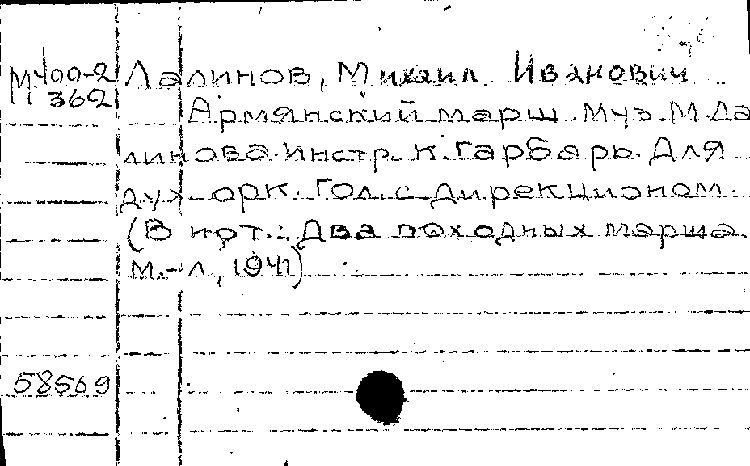 М400-2 Лалинов, Михаил Иванович
М 362
Армянский марш. Муз. М. Ла
линова. Инстр. К. Гарбарь. Для
дух. орк. Гол. с дирекционом.
(В кот.: Два походных марша.
М.-Л., 1941)
58569